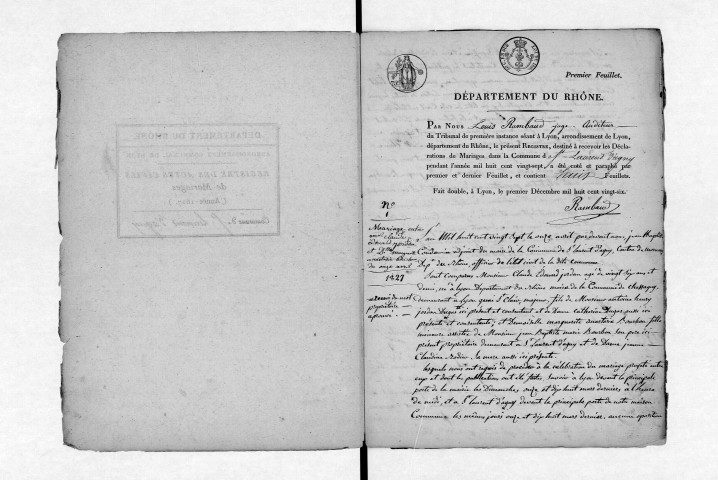 Premier Feuillet.
DÉPARTEMENT DU RHÔNE.
PAR NOUS Louis Rambaud juge Auditeur
du Tribunal de première instance séant à Lyon, arrondissement de Lyon,
département du Rhône, le présent REGISTRE, destiné à recevoir les Décla-
rations de Mariages dans la Commune d St Laurent d'agny
pendant l'année mil huit cent vingt-sept, a été coté et paraphé par
premier et dernier Feuillet, et contient Feuillets.
Fait double, à Lyon, le premier Décembre mil huit cent vingt-six.
Rambaud
No
1
Mariage entre
mr claude
édouard jordan
et Dlle marguerite
anastasie Bourbon
du onze avril
1827
propriétaire
approuvé
L'an Mil huit cent vingt sept le onze avril par devant nous, jean Baptiste
adjoint du maire de la Commune de St laurent d'agny, Canton de mornant
Dept du Rhône, officier de l'état civil de la dite commune
Sont comparus Monsieur Claude Edouard jordan agé de vingt six ans et
demi, né à Lyon Département du Rhône maire de la Commune de chassagny
demeurant à Lyon quai St Clair, majeur, fils de Monsieur antoine henry
jordan Dugas ici présent et consentant et de Dame Catherine Dugas aussi ici
présente et consentante; et Demoiselle marguerite anastasie Bourbon fille
mineure assistée de Monsieur jean Baptiste marie Bourbon son père ici
présent propriétaire demeurant à St Laurent d'agny et de Dame jeanne
Claudine Rodier sa mère aussi ici présente.
Lesquels nous ont requis de procéder à la célébration du mariage projeté entre
eux et dont les publications ont été faites, savoir à Lyon devant la principale
porte de la mairie les Dimanches, onze et dix huit mars derniers, à l'heure
de midi, et à St laurent d'agny devant la principale porte de notre maison
Commune les mêmes jours onze et dix huit mars dernier, aucune opposition